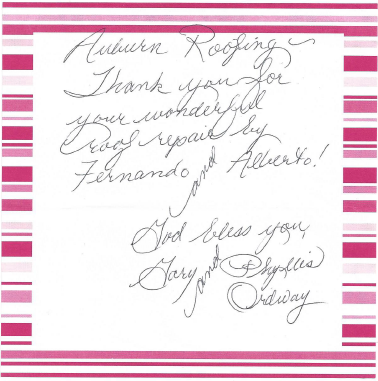 Auburn Roofing ~
Thank you for
your wonderful
roof repair by
Fernando and Alberto!
God bless you,
Gary and Phyllis
Ordway